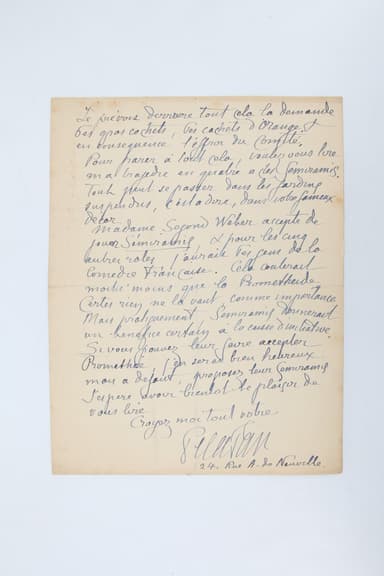 Je prévois derrière tout cela la demande
des gros cachets, des cachets d'Orange, &
en conséquence l'effroi du Comité.
Pour parer à tout cela, voulez vous lire
ma tragédie en quatre actes Semiramis.
Tout peut se passer dans les Jardins
suspendus, c'est à dire, dans votre fameux
décor.
Madame Segond Weber accepte de
jouer Sémiramis, & pour les cinq
autres rôles j'aurais des gens de la
Comédie Française. Cela couterait
moitié moins que la Prometheide
Certes rien ne la vaut, comme importance
Mais pratiquement, Semiramis donnerait
un bénéfice certain à la caisse d'initiative.
Si vous pouvez leur faire accepter
Promethée j'en serai bien heureux
mais à défaut, proposez leur Semiramis
J'espère avoir bientôt le plaisir de
vous lire
Croyez moi tout votre
Peladan
24. Rue A. de Neuville.